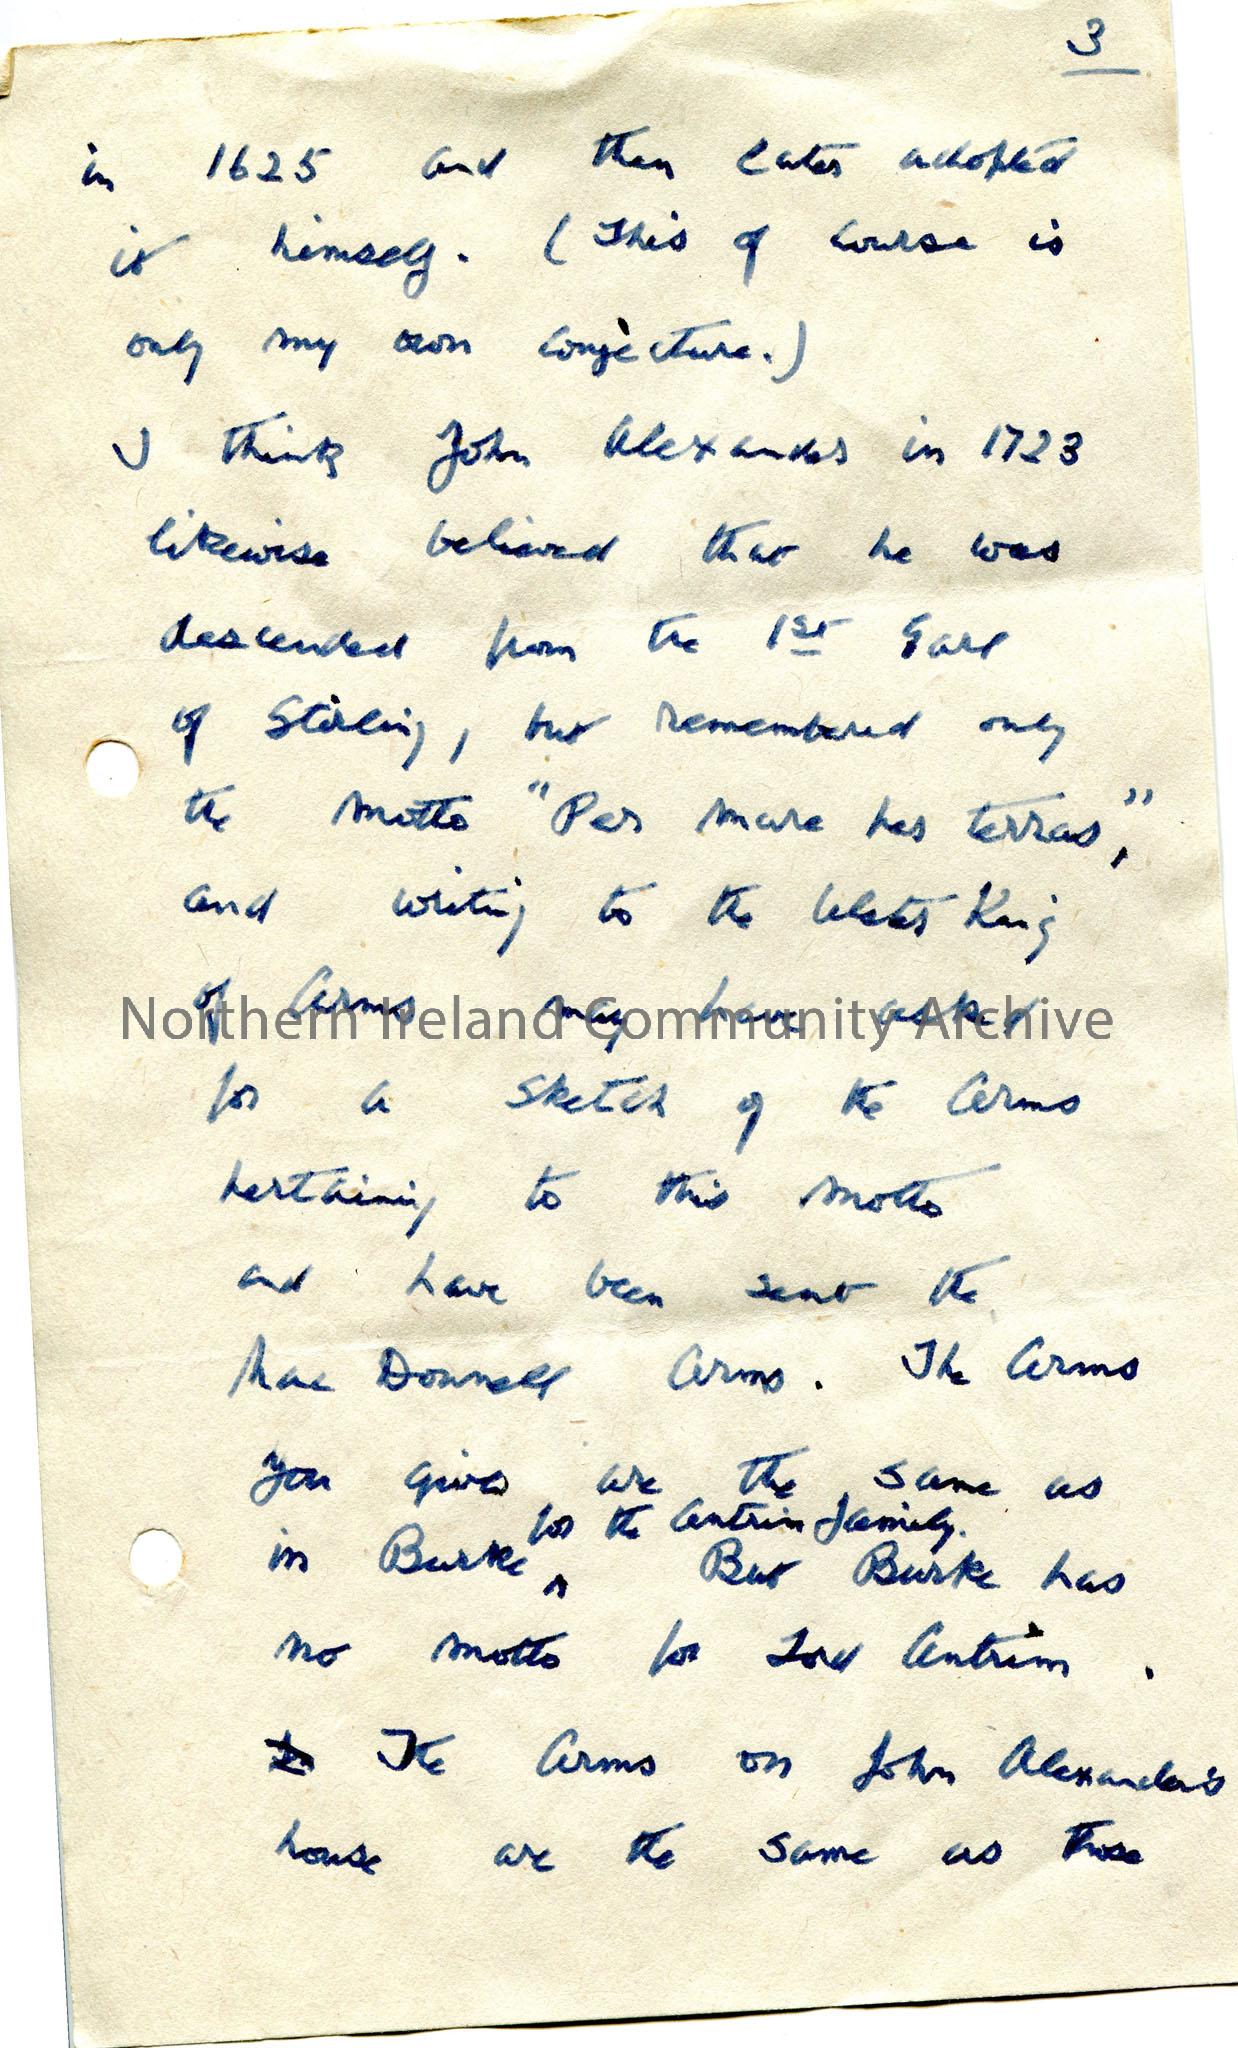 3
in 1625 and then later adopted
it himself. (This of course is
only my own conjecture.)
I think John Alexander in 1723
likewise believed that he was
descended from the 1st Earl
of Stirling, but remembered only
the motto "Per mare per terras",
and writing to the Ulster King
of Arms may have asked
Northern Ireland Community Archive
for a sketch of the Arms
pertaining to this motto
and have been sent the
Mac Donnell Arms. The Arms
you give are the same as
in Burke ^ for the Antrim family. But Burke has
no motto for Lord Antrim.
The Arms on John Alexander's
house are the same as those